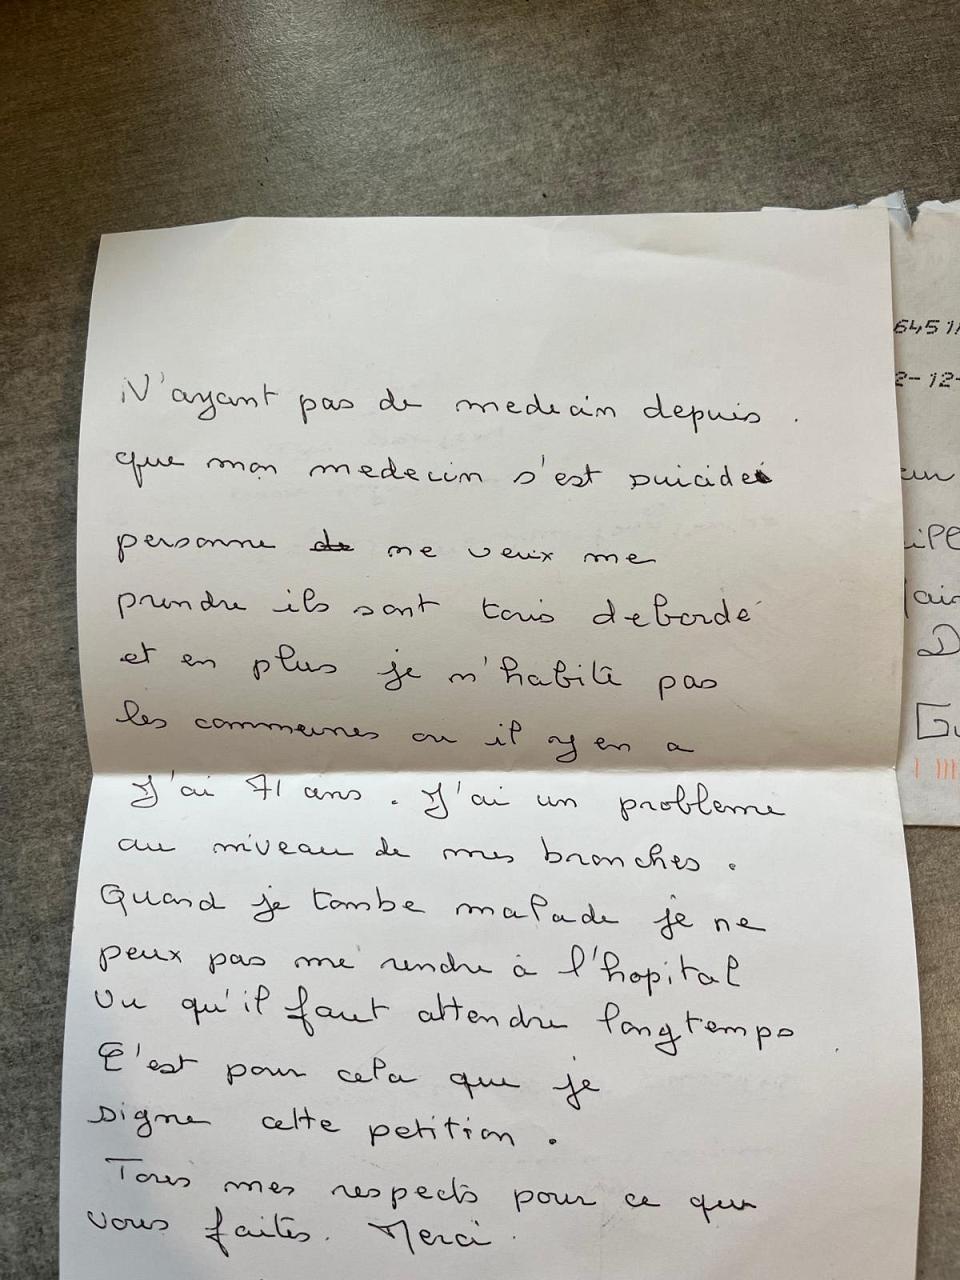 N'ayant pas de medecin depuis.
que mon medecin s'est suicidé
personne de ne veux me
prendre ils sont tous debordé
et en plus je n'habite pas
les communes ou il y en a
J'ai 71 ans. J'ai un probleme
au niveau de mes bronches.
Quand je tombe malade je ne
peux pas me rendre à l'hopital
Vu qu'il faut attendre longtemps
C'est pour cela que je
signe cette petition.
Tous mes respects pour ce que
vous faites. Merci.
6451A
2-12-